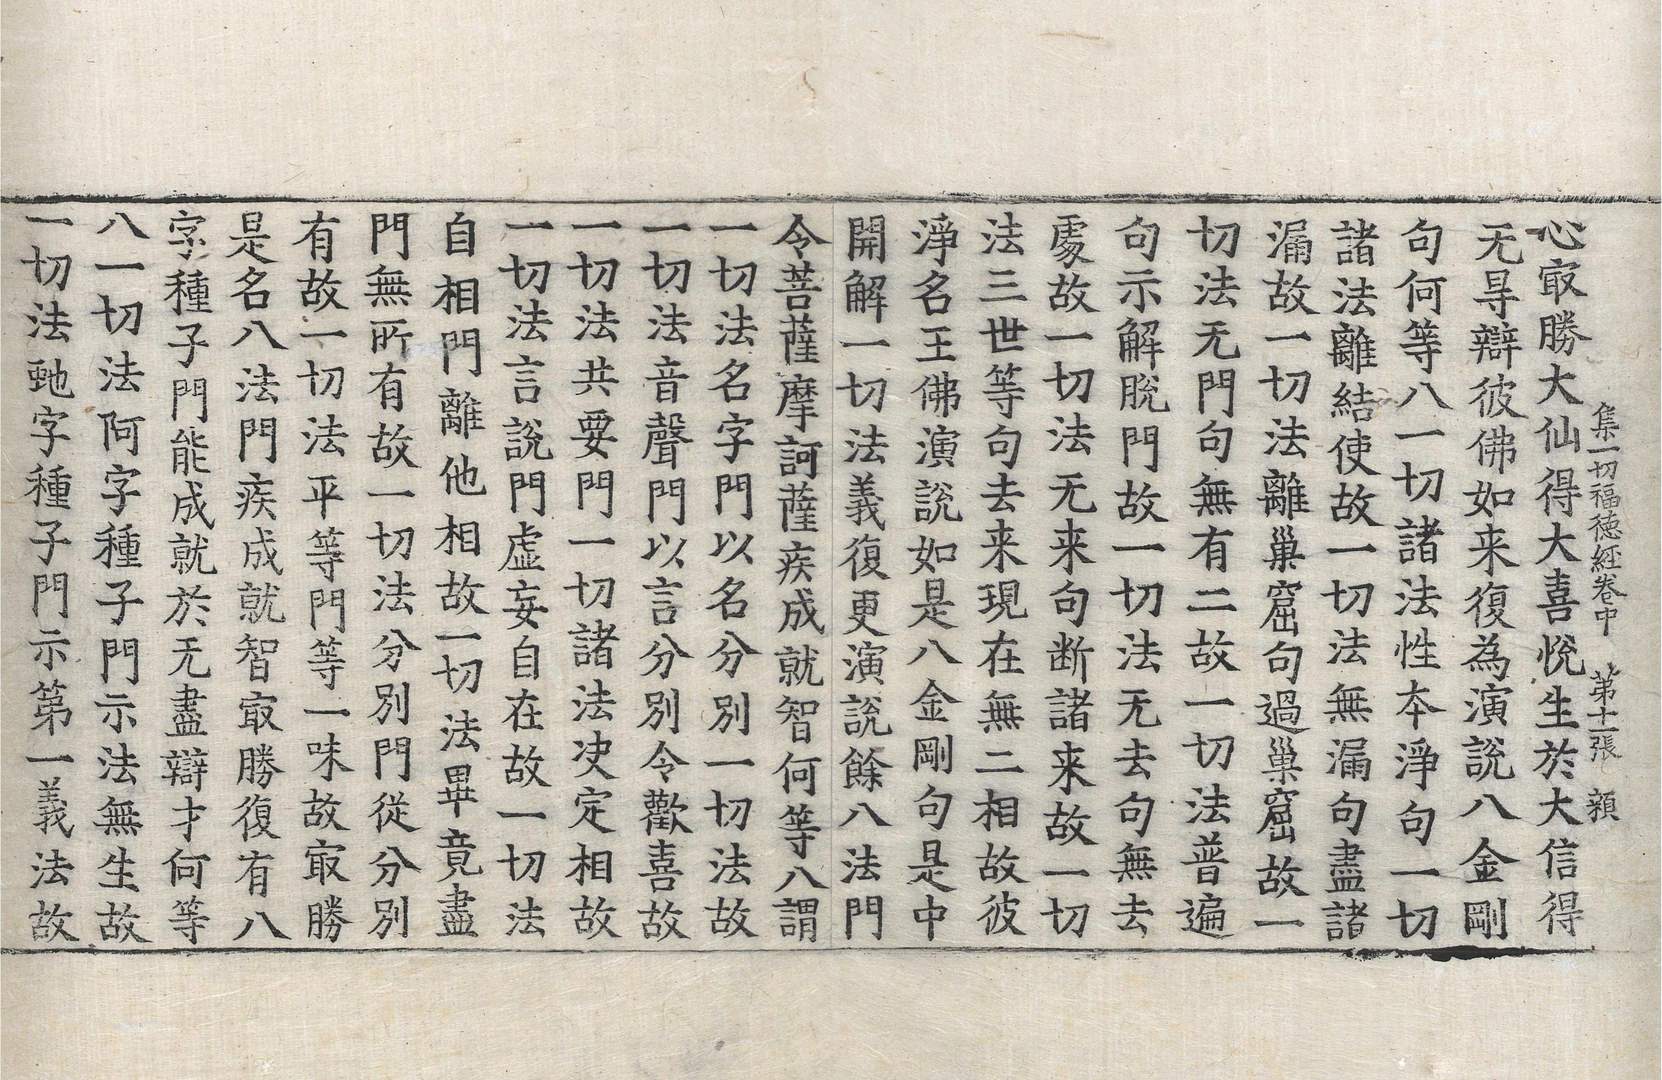 集一切福德経卷中　第十一張　頛
心㝡勝大仙得大喜悅生於大信得
无㝵辯彼佛如来復為演說八金剛
句何等八一切諸法性本淨句一切
諸法離結使故一切法無漏句盡諸
漏故一切法離巢窟句過巢窟故一
切法无門句無有二故一切法普遍
句示解脫門故一切法无去句無去
處故一切法无来句断諸来故一切
法三世等句去来現在無二相故彼
淨名王佛演說如是八金剛句是中
開解一切法義復更演說餘八法門
令菩薩摩訶薩疾成就智何等八謂
一切法名字門以名分別一切法故
一切法音聲門以言分別令歡喜故
一切法共要門一切諸法决定相故
一切法言說門虛妄自在故一切法
自相門離他相故一切法畢竟盡
門無所有故一切法分別門從分別
有故一切法平等門等一味故㝡勝
是名八法門疾成就智㝡勝復有八
字種子門能成就於无盡辯才何等
八一切法阿字種子門示法無生故
一切法虵字種子門示第一義法故